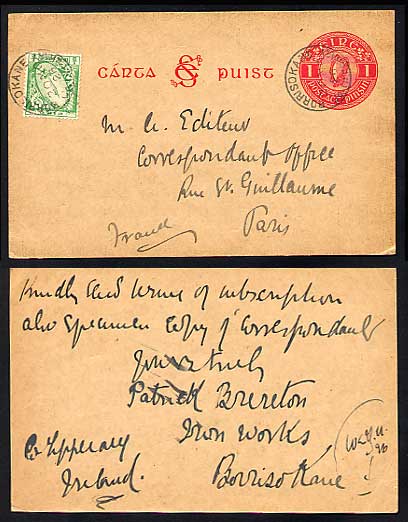 CÁRTA SÉ PUIST
1 1
M. A. Editeur
Correspondant Office
Rue St. Guillaume
Paris
France
Kindly send terms of subscription
also specimen copy of Correspondant
Yours truly
Patrick Brereton
Iron Works
Borrisokane
Co Tipperary
Ireland.